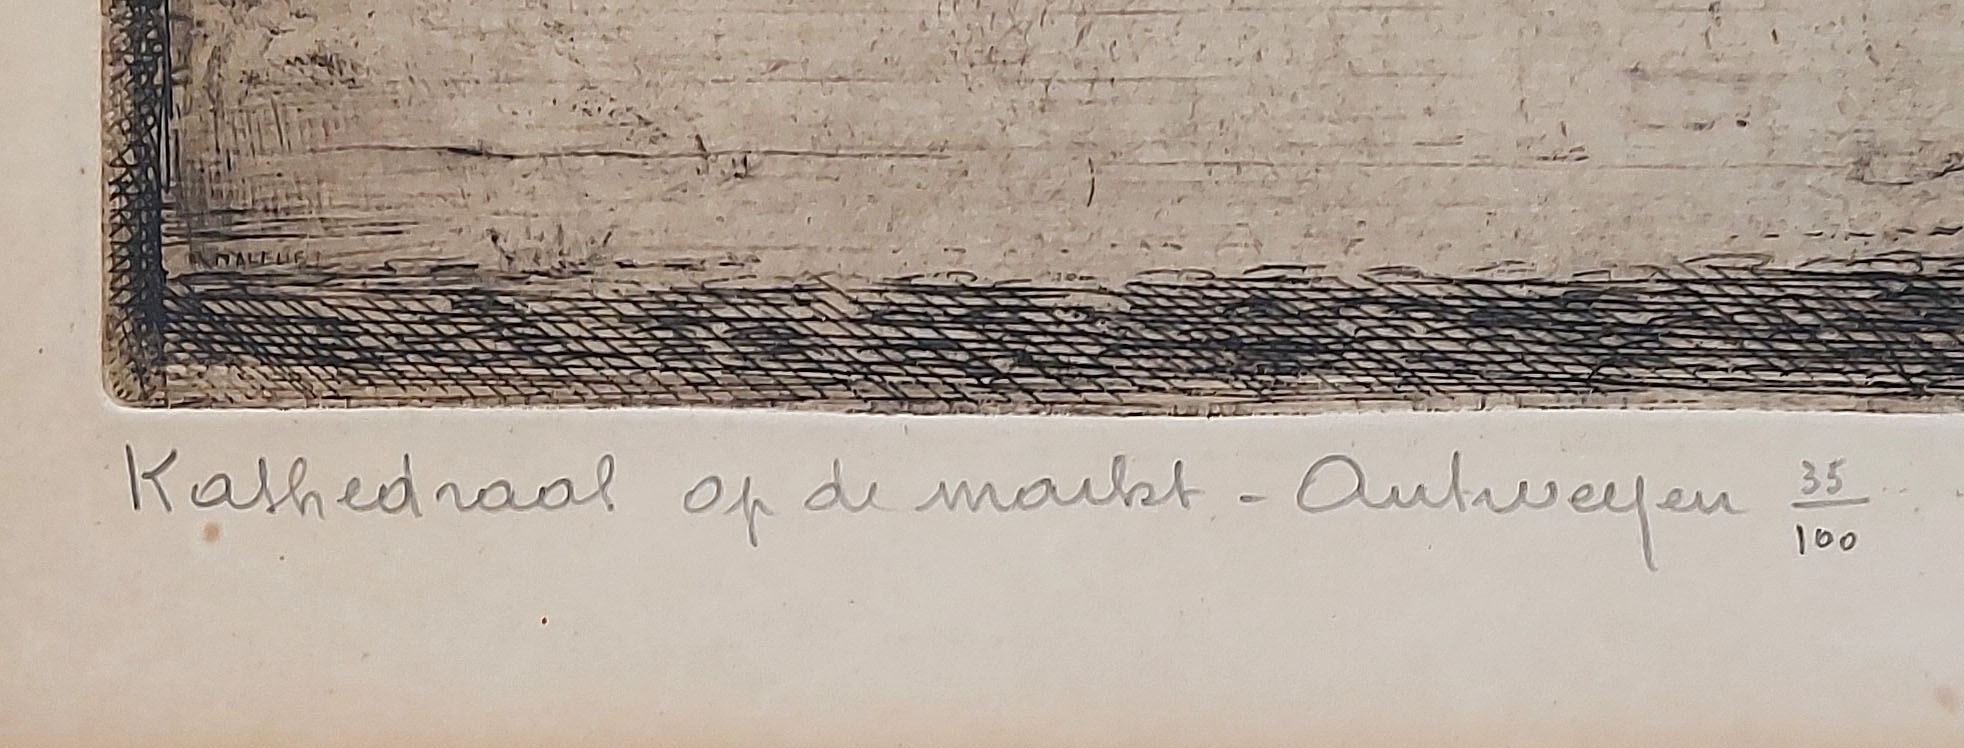 Kathedraal op de markt - Antwerpen 35/100